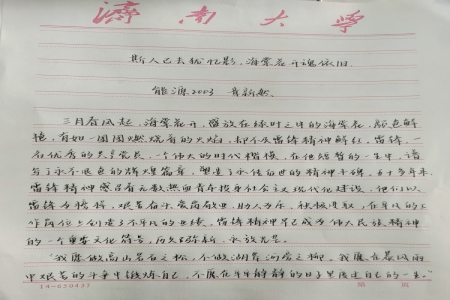 济南大学
斯人已去犹忆影,海棠花开魂依旧
能源2003
三月春风起,海棠花开,盛放在绿叶之中的海棠花,颜色鲜
艳,有如一团团燃烧着的火焰,却不及雷锋精神鲜红。雷锋,一
名优秀的共产党员,一个伟大的时代楷模,在他短暂的一生中,谱
写了永不退色的辉煌篇章,塑造了永传后世的精神丰碑。几十多年来,
雷锋精神感召着无数热血青年投身社会主义现代化建设,他们以
雷锋为榜样,艰苦奋斗,爱岗敬业,助人为乐,积极进取,在平凡的工
作岗位上创造了不平凡的业绩。雷锋精神早已成为伟大民族精神中
的一个重要文化符号,历久弥新,永放光芒。
“我愿做高山岩石之松,不做湖岸河旁之柳。我愿在暴风雨
中艰苦的斗争中锻炼自己,不愿在平平静静的日子里度过自己的一生。”
14-030437
第 页